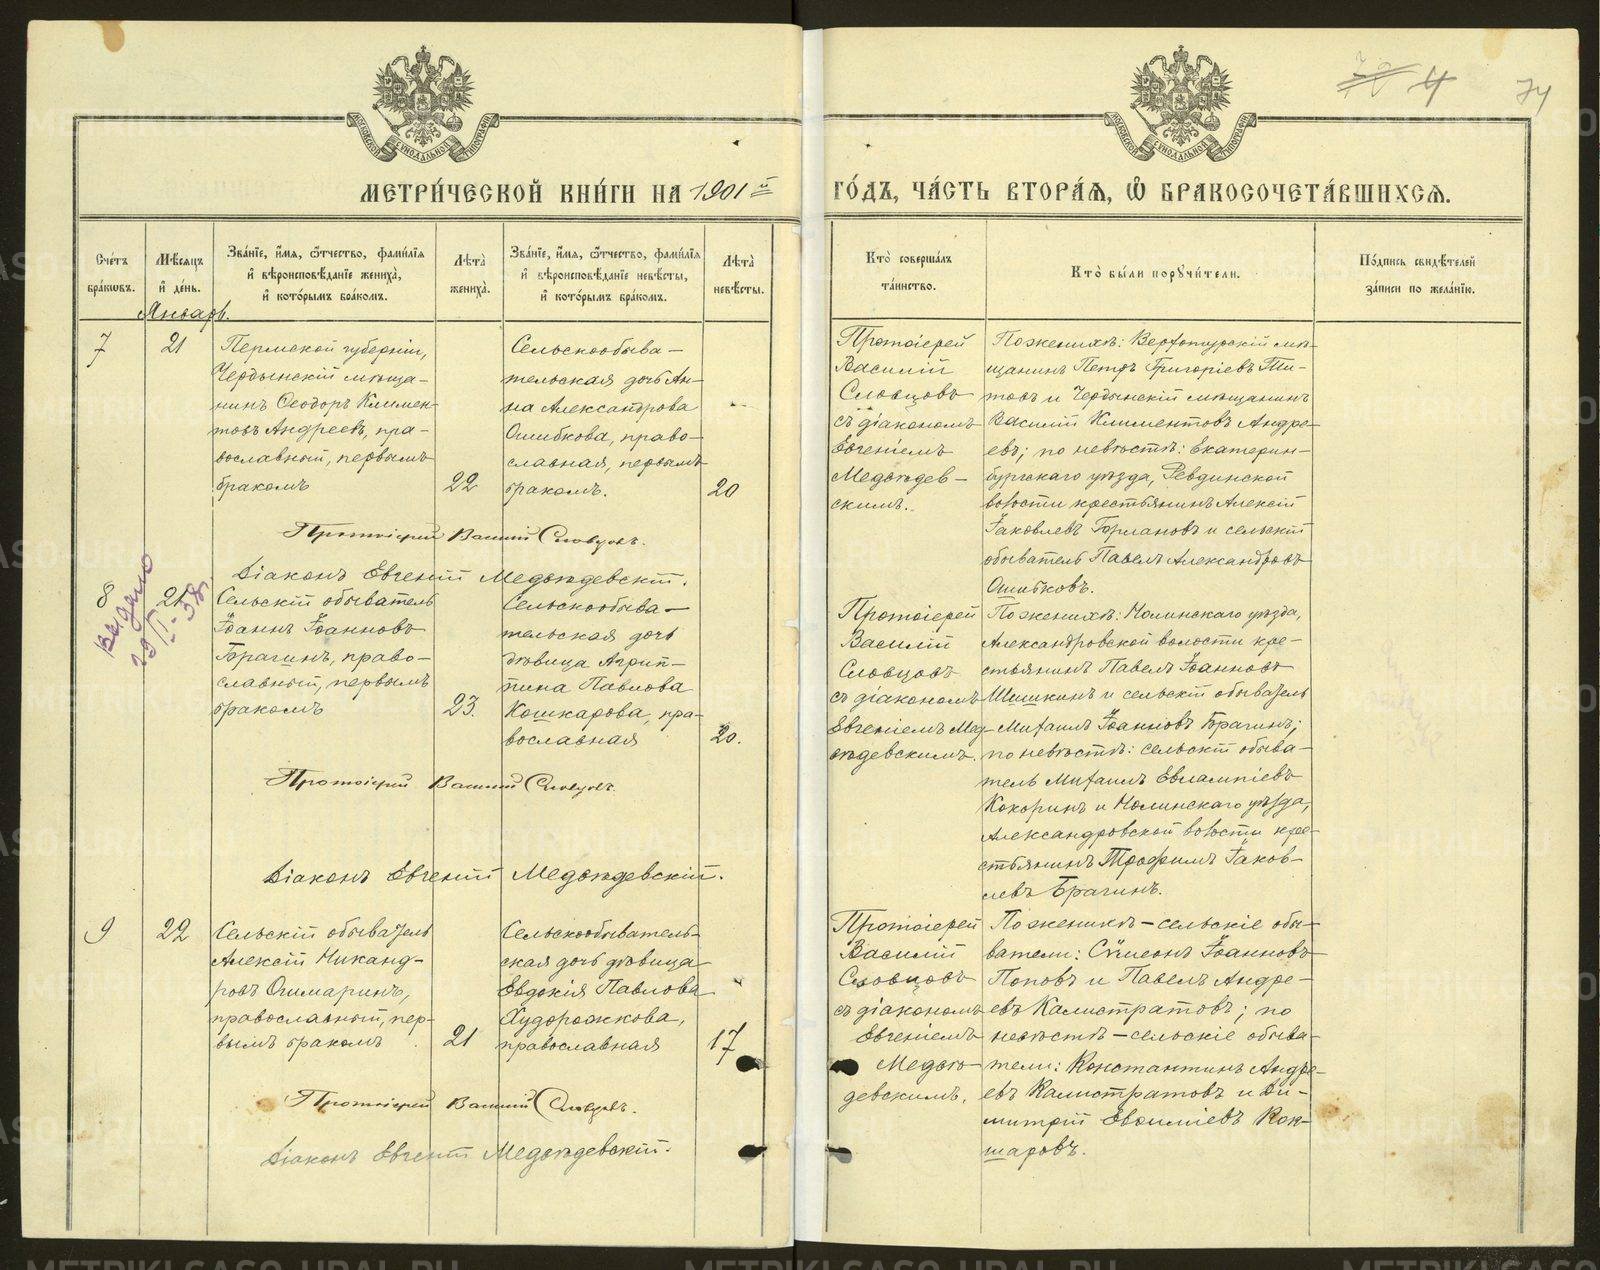 МЕТРИ́ЧЕСКОЙ КНИ́ГИ НА 1901й
ГО́ДЪ, ЧА́СТЬ ВТОРА́Я, Ѽ БРАКОСОЧЕТА́ВШИХСЯ.
74
Счетъ бракωвъ.
Мѣсяцъ и день.
Зва́нїе, и́мя, ѻ҆́тчество, фами́лїя
и҆ вѣроисповѣ́данїе жениха̀,
и҆ кото́рымъ бра́комъ.
Лѣта̀ жениха̀.
Зва́нїе, и́мя, ѻ҆́тчество, фами́лїя
и҆ вѣроисповѣ́данїе невѣ́сты,
и҆ кото́рымъ бра́комъ.
Лѣта̀ невѣ́сты.
Кто̀ соверша́лъ
та́инство.
Кто̀ бы́ли порꙋчи́тели.
По́дпись свидѣ́телей
за́писи по жела́нїю.
Январь.
7
21
Пермской губерніи,
Чердынскій мѣща-
нинъ Ѳеодоръ Климен-
товъ Андреевъ, пра-
вославный, первымъ
бракомъ
22
Сельскообыва-
тельская дочь Ан-
на Александрова
Ошибкова, право-
славная, первымъ
бракомъ.
20
Протоіерей
Василій
Словцовъ
съ діакономъ
Евгеніемъ
Медвѣдев-
скимъ.
По женихѣ: Верхотурскій мѣ-
щанинъ Петръ Григоріевъ Ти-
товъ и Чердынскій мѣщанинъ
Василій Климентовъ Андре-
евъ; по невѣстѣ: Екатерин-
бургскаго уѣзда, Ревдинской
волости крестьянинъ Алексій
Іаковлевъ Горлановъ и сельскій
обыватель Павелъ Александровъ
Ошибковъ.
Протоіерей Василій Словцовъ.
Діаконъ Евгеній Медвѣдевскій.
8
21
выдано
Сельскій обыватель
Іоаннъ Іоанновъ
Брагинъ, право-
славный, первымъ
бракомъ
23.
Сельскообыва-
тельская дочь
дѣвица Агрип-
пина Павлова
Кошкарова, пра-
вославная
20.
Протоіерей
Василій
Словцовъ
съ діакономъ
Евгеніемъ Мед-
вѣдевскимъ.
По женихѣ: Нолинскаго уѣзда,
Александровской волости кре-
стьянинъ Павелъ Іоанновъ
Шишкинъ и сельскій обыватель
Михаилъ Іоанновъ Брагинъ;
по невѣстѣ: сельскій обыва-
тель Михаилъ Евлампіевъ
Кокоринъ и Нолинскаго уѣзда,
Александровской волости кре-
стьянинъ Трофимъ Іаков-
левъ Брагинъ.
Протоіерей Василій Словцовъ.
Діаконъ Евгеній Медвѣдевскій.
9
22
Сельскій обыватель
Алексій Никанд-
ровъ Огимаринъ,
православный, пер-
вымъ бракомъ
21
Сельскообыватель-
ская дочь дѣвица
Евдокія Павлова
Худорожкова,
православная
17
Протоіерей
Василій
Словцовъ
съ діакономъ
Евгеніемъ
Медвѣ-
девскимъ.
По женихѣ - сельскіе обы-
ватели: Сѵмеонъ Іоанновъ
Поповъ и Павелъ Андре-
евъ Калистратовъ; по
невѣстѣ - сельскіе обыва-
тели: Константинъ Андре-
евъ Калистратовъ и Ди-
митрій Евѳиміевъ Кок-
шаровъ.
Протоіерей Василій Словцовъ.
Діаконъ Евгеній Медвѣдевскій.